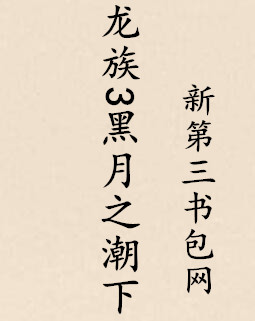 龙族3黑月之潮下
新第三书包网